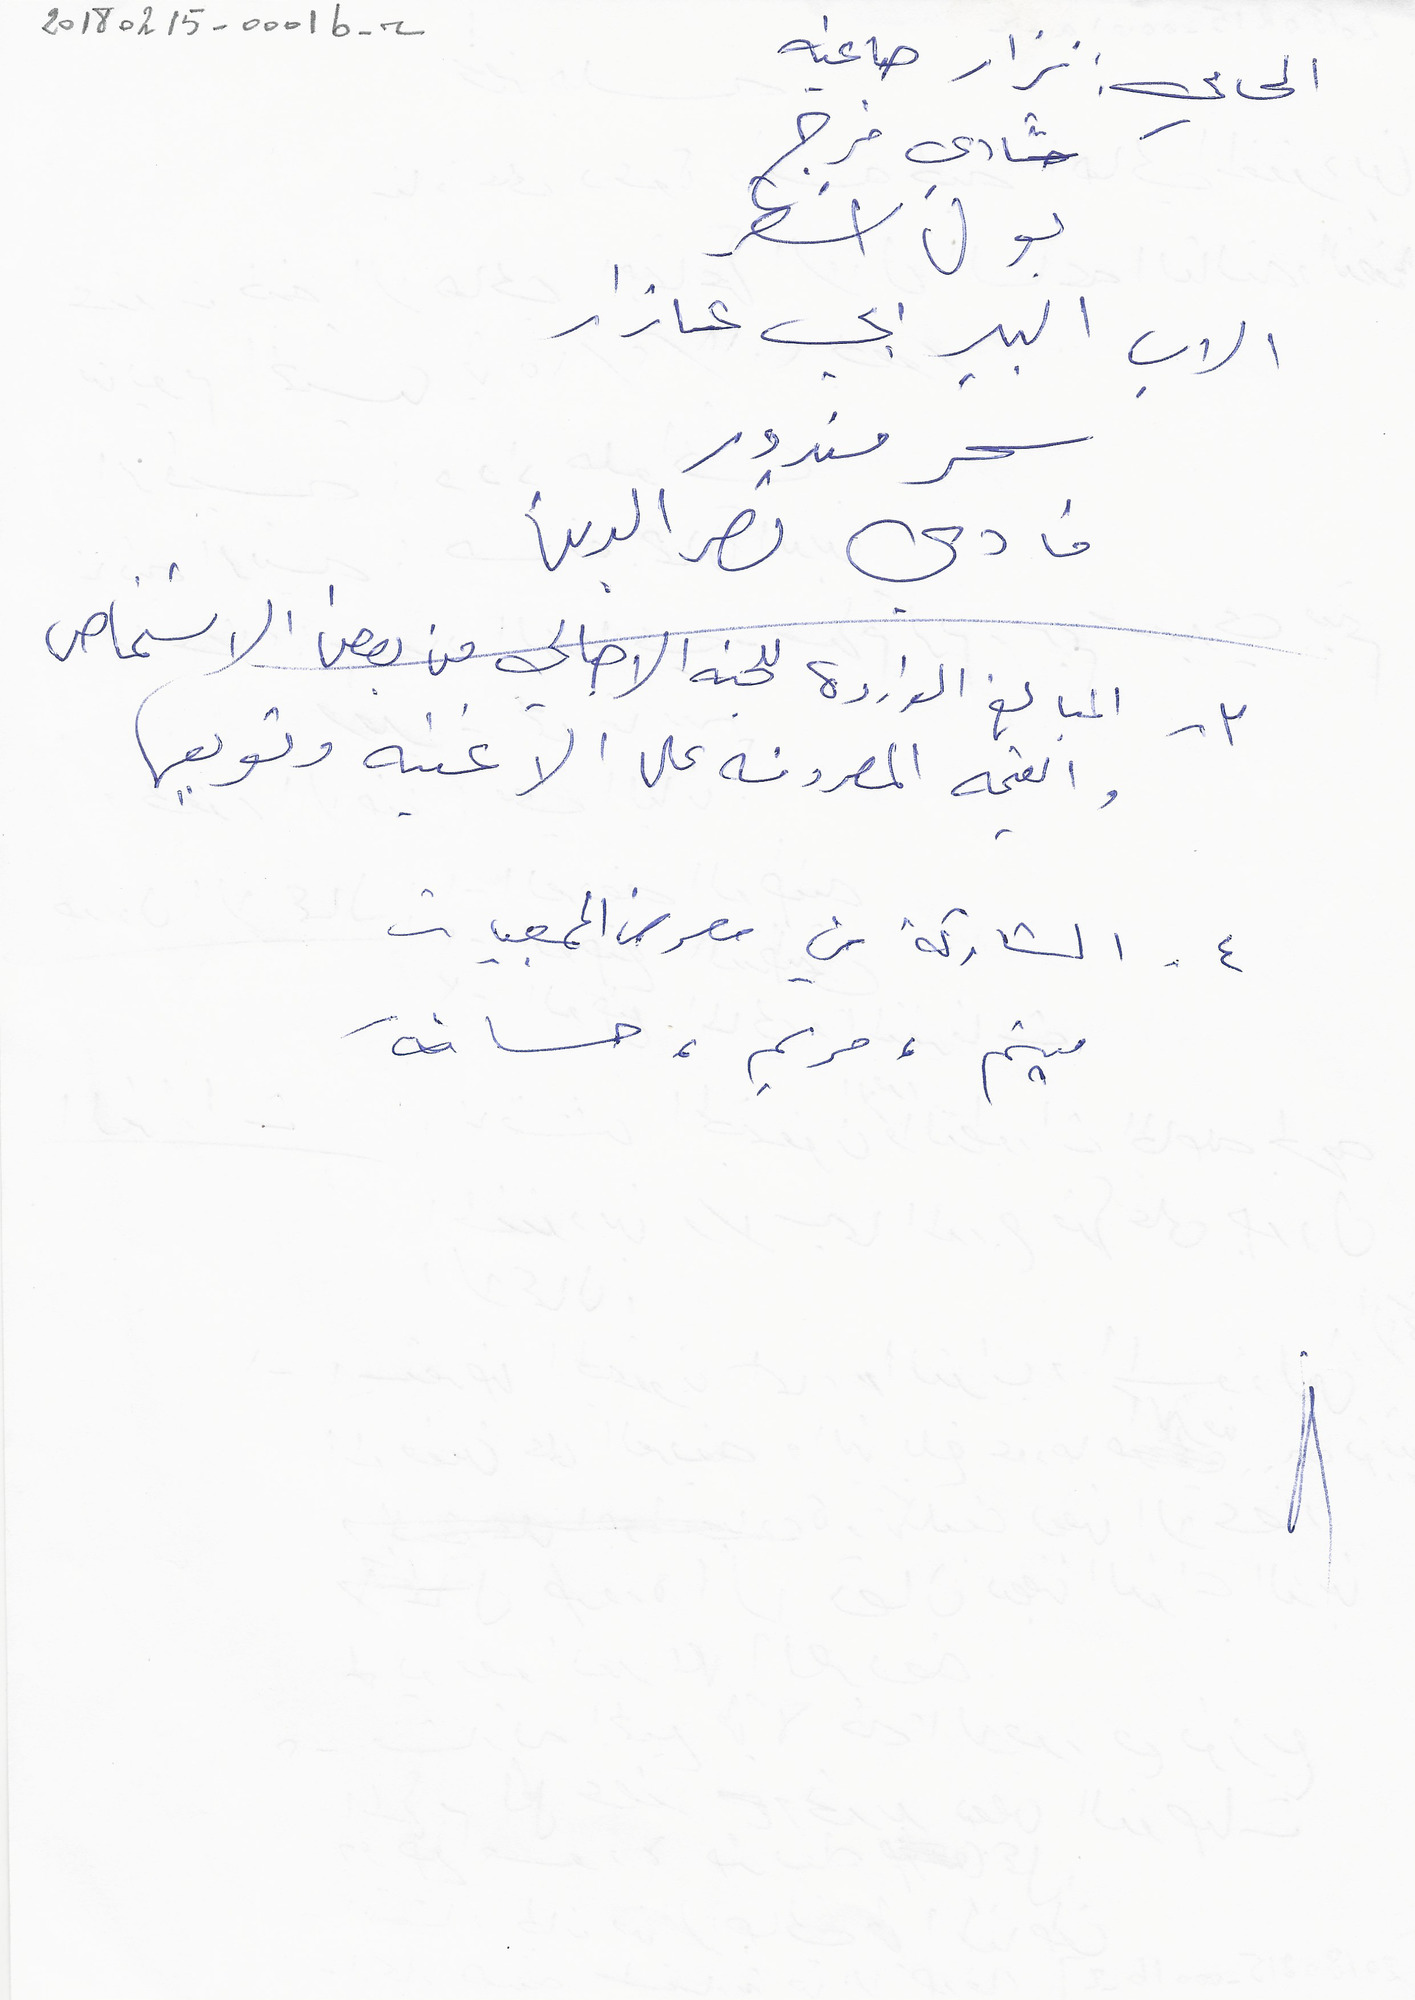 20180215-00016-r
المحامي: نزار صاغيه
شادي فرج
بول اشقر
الاب البير ابي عازار
سحر مندور
فادي نصر الدين
٣- المبالغ الواردة للجنة الاهالي من بعض الاشخاص
والقيمه المصروفه على الاغنيه وتوبعها
٤. المشاركة في معرض الجمعيات
ميثم، مريم،